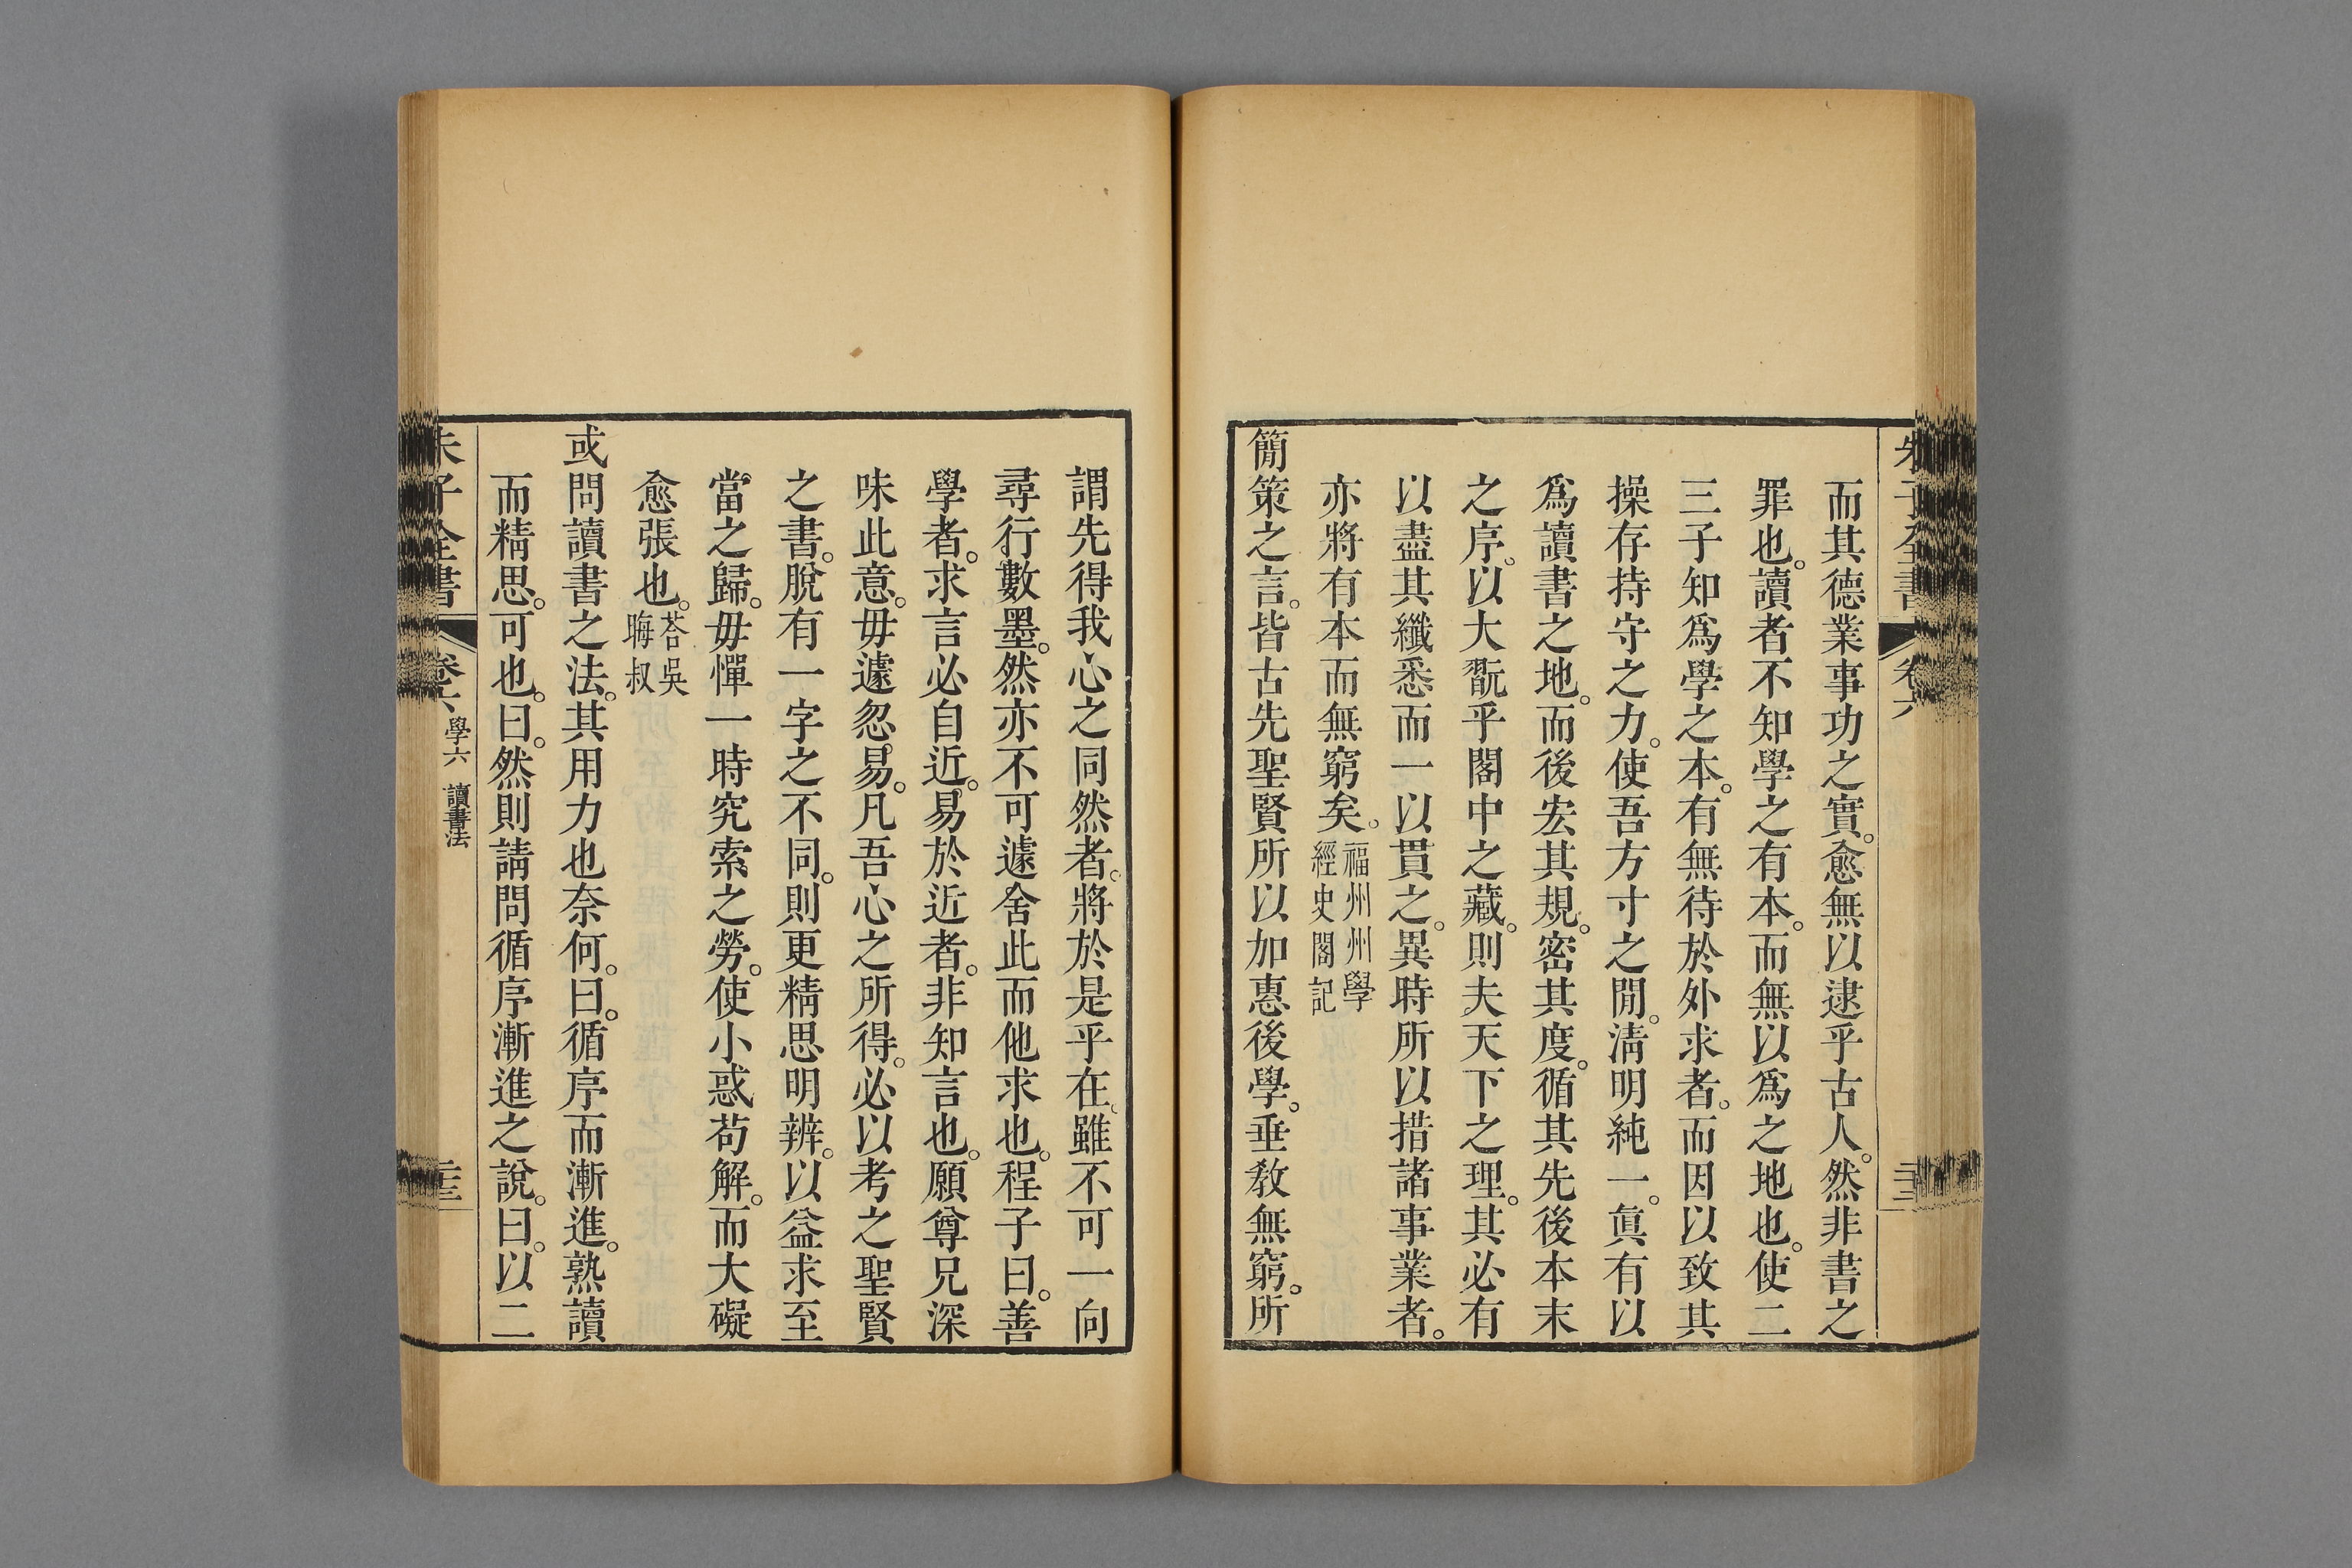 朱子全書 卷六 二十二
而其德業事功之實。愈無以逮乎古人。然非書之
罪也。讀者不知學之有本。而無以爲之地也。使二
三子知爲學之本。有無待於外求者。而因以致其
操存持守之力。使吾方寸之閒。淸明純一。眞有以
爲讀書之地。而後宏其規。密其度。循其先後本末
之序。以大翫乎閣中之藏。則夫天下之理。其必有
以盡其纖悉而一以貫之。異時所以措諸事業者。
亦將有本而無窮矣。福州州學
經史閣記
簡策之言。皆古先聖賢所以加惠後學。垂敎無窮。所
謂先得我心之同然者。將於是乎在。雖不可一向
尋行數墨。然亦不可遽舍此而他求也。程子曰。善
學者。求言必自近。易於近者。非知言也。願尊兄深
味此意。毋遽忽易。凡吾心之所得。必以考之聖賢
之書。脫有一字之不同。則更精思明辨。以益求至
當之歸。毋憚一時究索之勞。使小惑苟解。而大礙
愈張也。荅吳
晦叔
或問讀書之法。其用力也奈何。曰。循序而漸進。熟讀
而精思。可也。曰。然則請問循序漸進之說。曰。以二
朱子全書 卷六 學六 讀書法 二十三